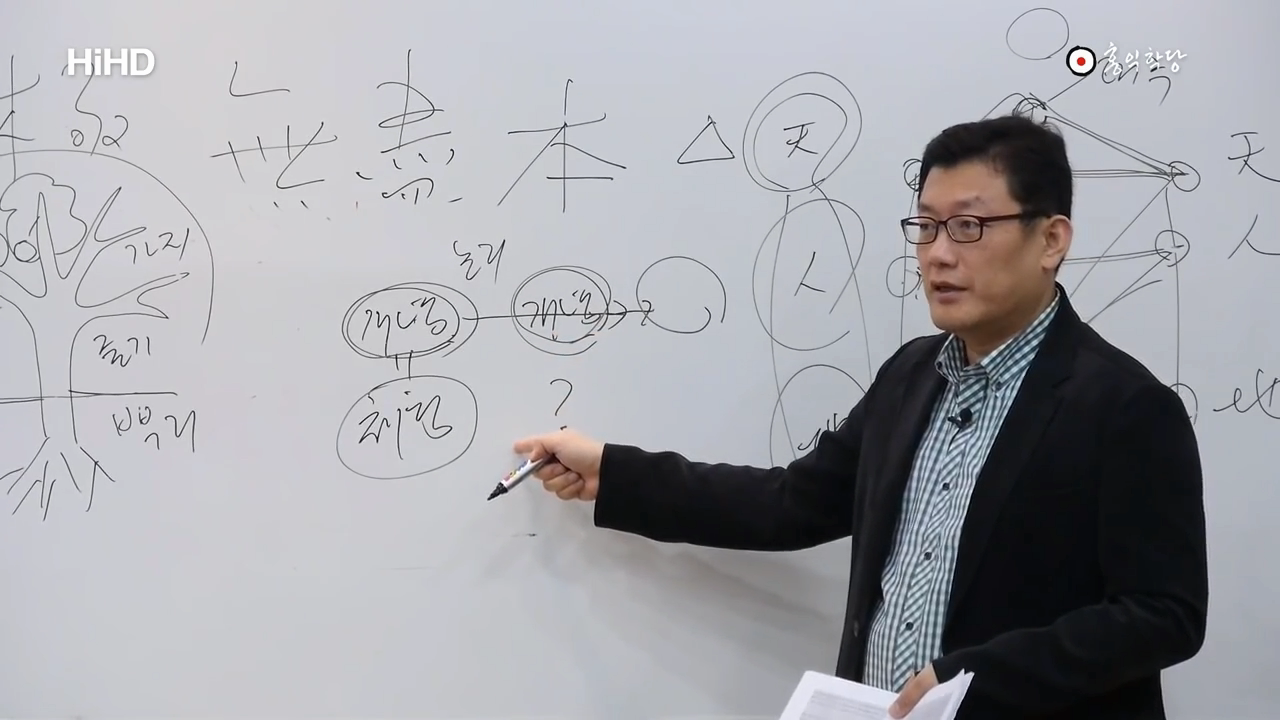 HiHD
홍익학당
無盡本 △ 天
天
人
人
地
가지
줄기
뿌리
논리
개념 개념
체험 ?